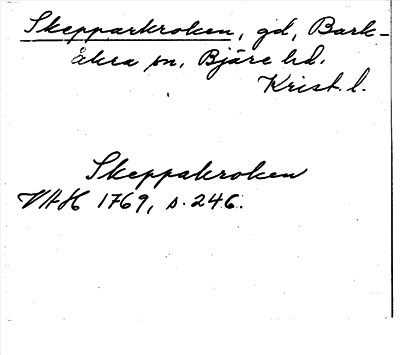 Skepparkroken, gd, Bark-
åkra sn, Bjäre hd.
Krist. l.
Skeppakroken
VAH 1769, s. 246.